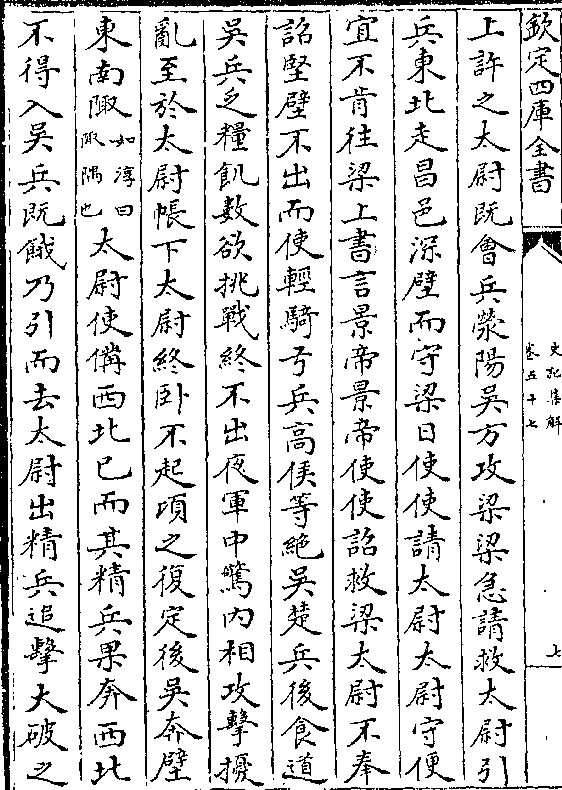 欽定四庫全書
史記集解
卷五十七
七
上許之太尉既會兵滎陽吳方攻梁梁急請救太尉引
兵東北走昌邑深壁而守梁日使使請太尉太尉守便
宜不肯往梁上書言景帝景帝使使詔救梁太尉不奉
詔堅壁不出而使輕騎弓兵高侯等絕吳楚兵後食道
吳兵乏糧飢數欲挑戰終不出夜軍中驚内相攻擊擾
亂至於太尉帳下太尉終卧不起頃之復定後吳奔壁
東南陬如淳曰陬隅也太尉使備西北已而其精兵果奔西北
不得入吳兵既餓乃引而去太尉出精兵追擊大破之